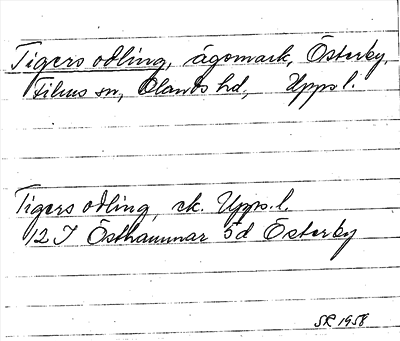 Tigers odling, ägomark, Österby,
Films sn, Olands hd, Upps l.
Tigers odling, ek. Upps. l.
12 I Östhammar 5d Österby
SR 1958